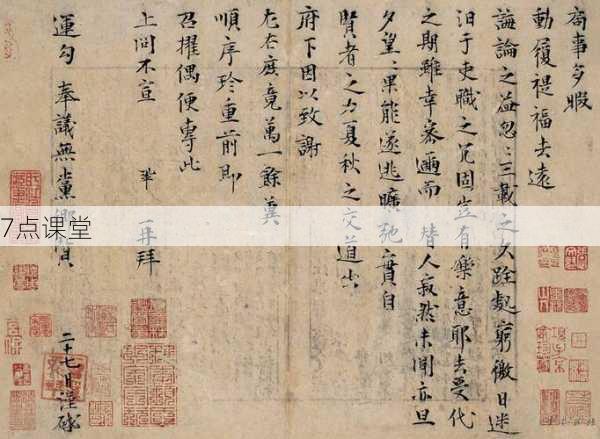 局事多暇
動履禔福去遠
誨論之益忽〻三載之久跧處窮徼日迷
汨于吏職之冗固豈有樂意耶去受代
之期雖幸密邇而替人寂然未聞亦旦
夕望〻果能遂逃曠弛實自
賢者之力夏秋之交道出
府下因以致謝
左右庶竟萬一餘冀
順序珍重前即
召擢偶便專此
上問不宣 鞏再拜
運勾奉議無黨鄉賢
二十七日謹啓
7点课堂